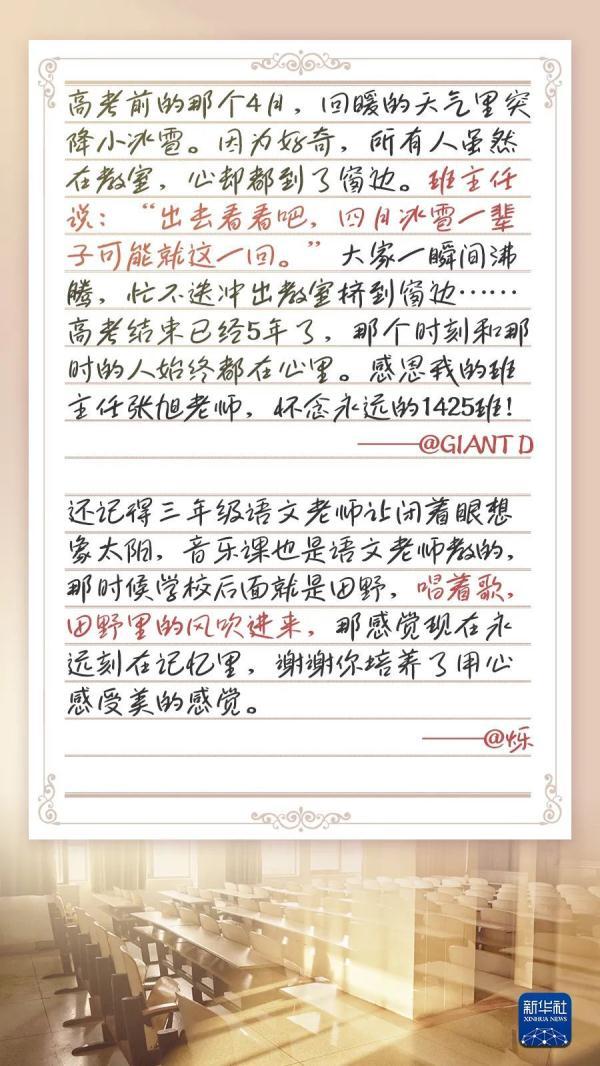 高考前的那个4月，回暖的天气里突
降小冰雹。因为好奇，所有人虽然
在教室，心却都到了窗边。班主任
说：“出去看看吧，四月冰雹一辈
子可能就这一回。”大家一瞬间沸
腾，忙不迭冲出教室挤到窗边……
高考结束已经5年了，那个时刻和那
时的人始终都在心里。感恩我的班
主任张旭老师，怀念永远的1425班！
——@GIANT D
还记得三年级语文老师让闭着眼想
象太阳，音乐课也是语文老师教的，
那时候学校后面就是田野，唱着歌，
田野里的风吹进来，那感觉现在永
远刻在记忆里，谢谢你培养了用心
感受美的感觉。
——@烁
新华社
XINHUA NEWS